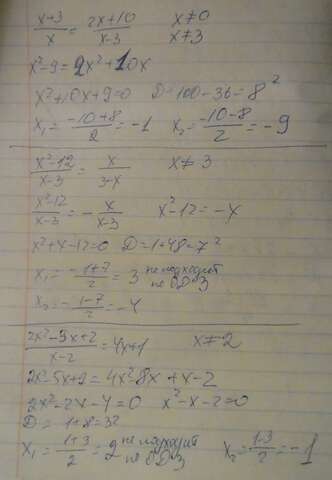 x+3/x = 2x+10/x-3 x≠0 x≠3
x²-9=2x²+10x
x²+10x+9=0 D=100-36=8²
x₁=-10+8/2=-1 x₂=-10-8/2=-9
x²-12/x-3=x/3-x x≠3
x²-12/x-3=-x/x-3 x²-12=-x
x²+x-12=0 D=1+48=7²
x₁=-1+7/2=3 не подходит по ОДЗ
x₂=-1-7/2=-4
2x²-5x+2/x-2=4x+1 x≠2
2x²-5x+2=4x²-8x+x-2
2x²-2x-4=0 x²-x-2=0
D=1+8=3²
x₁=1+3/2=2 не подходит по ОДЗ x₂=1-3/2=-1